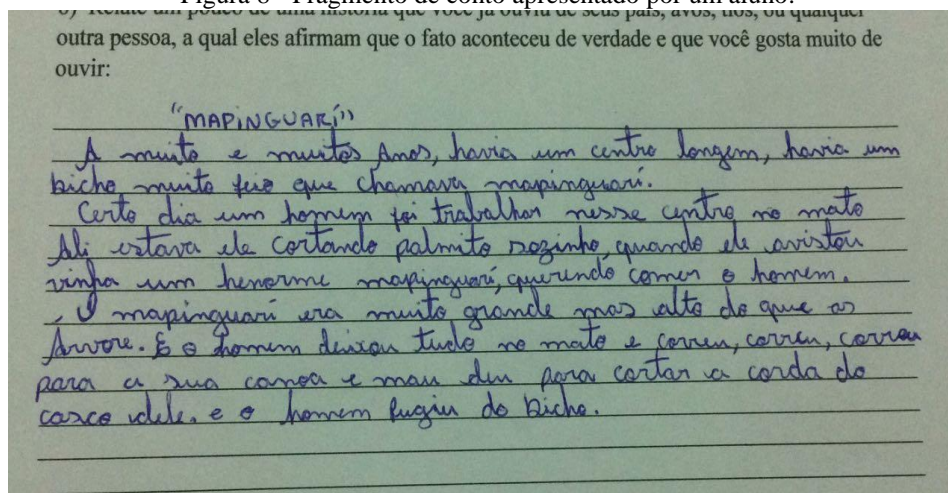 Figura 8 - Fragmento de conto apresentado por um aluno.
6) Relate um pouco de uma história que você já ouviu de seus pais, avós, tios, ou qualquer
outra pessoa, a qual eles afirmam que o fato aconteceu de verdade e que você gosta muito de
ouvir:
"MAPiNGUARí"
A muito e muitos Anos, havia um centro longem, havia um
bicho muito feio que chamava mapinguarí.
Certo dia um homem foi trabalhar nesse centro no mato
Ali estava ele cortando palmito sozinho, quando ele avistou
vinha um henorme mapinguarí, querendo comer o homem.
O mapinguari era muito grande mas alto do que as
Árvore. E o homem deixou tudo no mato e correu, correu, correu
para a sua canoa e mau deu para cortar a corda do
casco dele. e o homem fugiu do bicho.